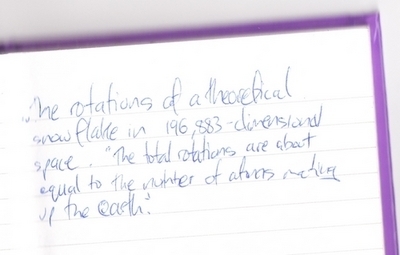 "The rotations of a theoretical
snowflake in 196,883-dimensional
space. "The total rotations are about
equal to the number of atoms making
up the earth".